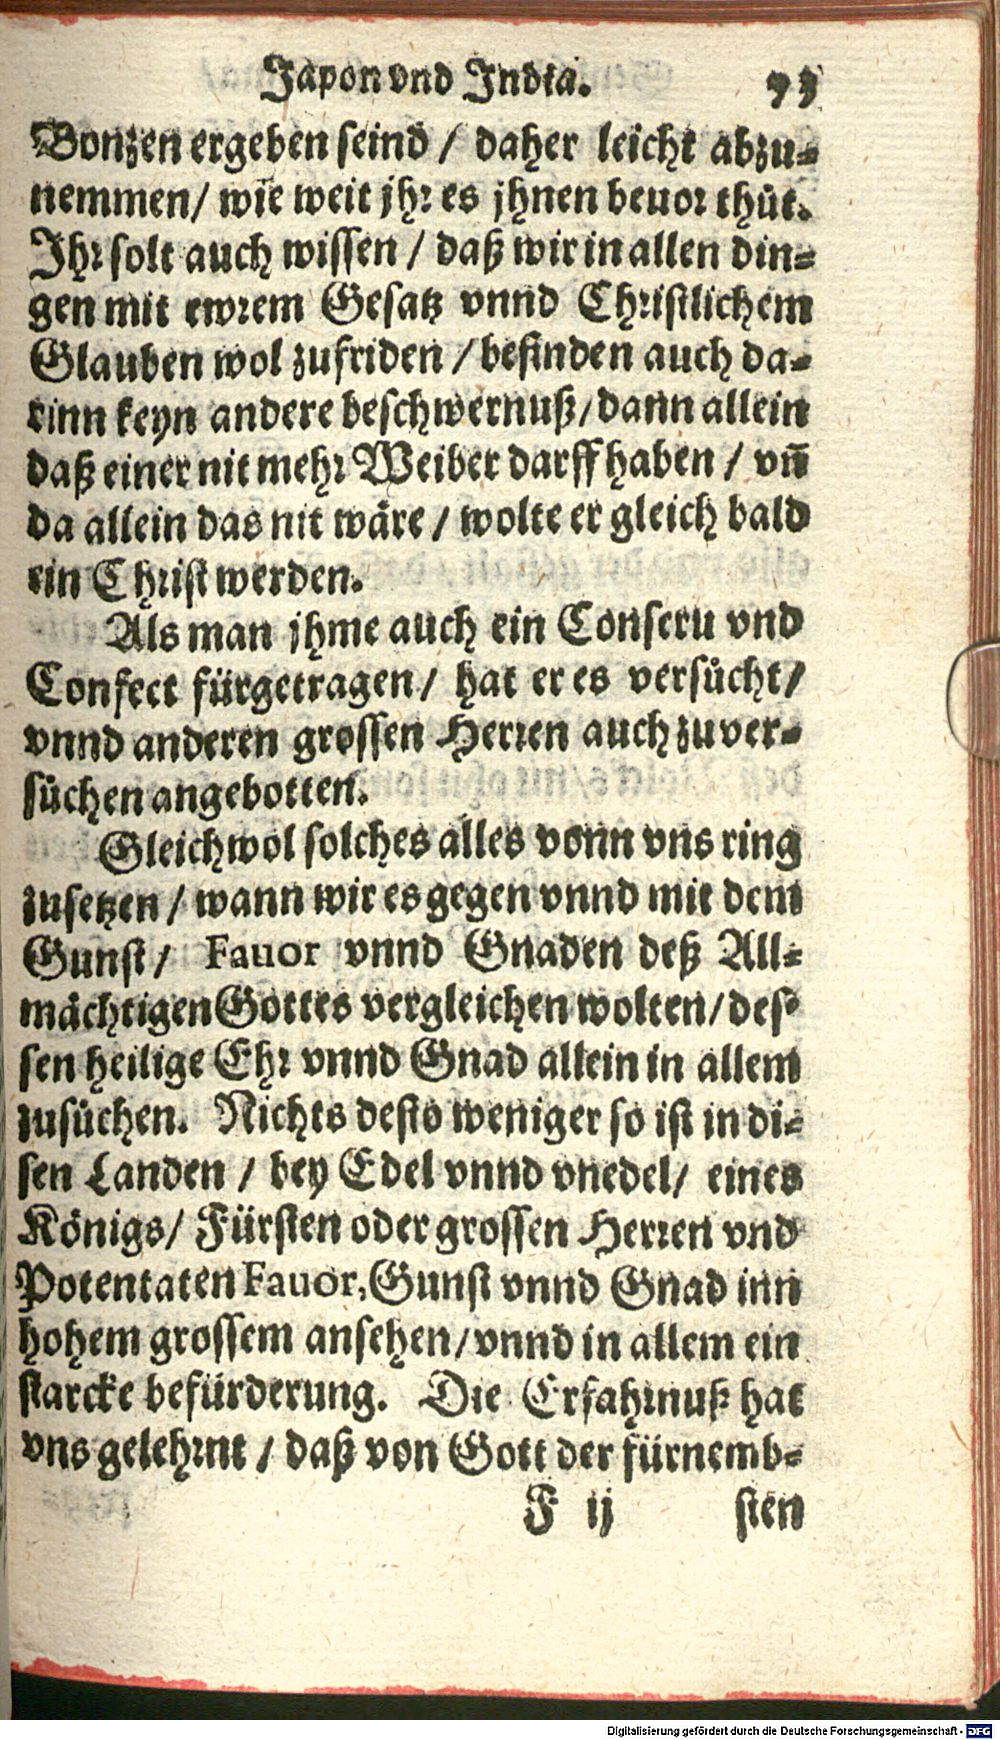 Japon vnd India. 93
Bonzen ergeben seind / daher leicht abzu-
nemmen / wie weit jhr es jhnen beuor thůt.
Ihr solt auch wissen / daß wir in allen din-
gen mit ewrem Gesatz vnnd Christlichem
Glauben wol zufriden / befinden auch da-
rinn keyn andere beschwernuß / dann allein
daß einer nit mehr Weiber darff haben / vn̄
da allein das nit wäre / wolte er gleich bald
ein Christ werden.
Als man jhme auch ein Conseru vnd
Confect fürgetragen / hat er es versůcht /
vnnd anderen grossen Herren auch zu ver-
sůchen angebotten.
Gleichwol solches alles vonn vns ring
zusetzen / wann wir es gegen vnnd mit dem
Gunst / Fauor vnnd Gnaden deß All-
mächtigen Gottes vergleichen wolten / des-
sen heilige Ehr vnnd Gnad allein in allem
zusůchen. Nichts desto weniger so ist in di-
sen Landen / bey Edel vnnd vnedel / eines
Königs / Fürsten oder grossen Herren vnd
Potentaten Fauor, Gunst vnnd Gnad inn
hohem grossem ansehen / vnnd in allem ein
starcke befürderung. Die Erfahrnuß hat
vns gelehrnt / daß von Gott der fürnemb-
F ij sten
Digitalisierung gefördert durch die Deutsche Forschungsgemeinschaft - DFG